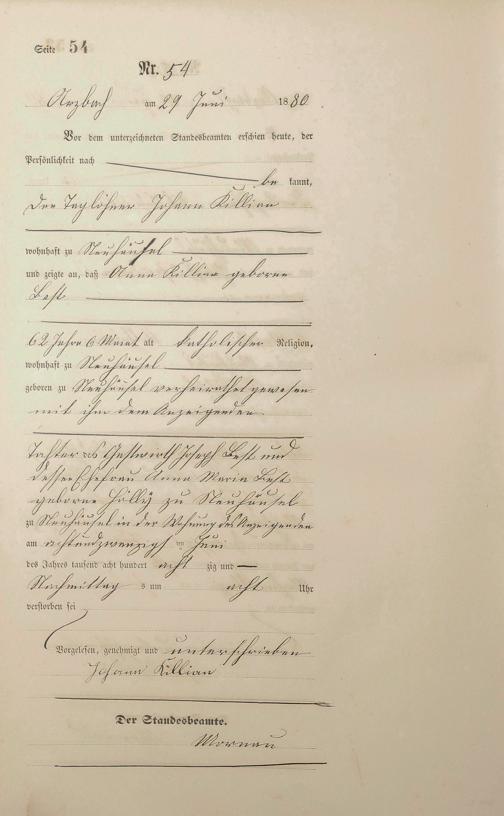 Seite 54
Nr. 54
Arzbach am 29 Juni 1880
Vor dem unterzeichneten Standesbeamten erschien heute, der
Persönlichkeit nach
be kannt,
Der Taglöhner Johann Killian
wohnhaft zu Neuhäusel
und zeigte an, daß Anna Killian geborne
Best
62 Jahre 6 Monat alt katholischer Religion,
wohnhaft zu Neuhäusel
geboren zu Neuhäusel verheirathet gewesen
mit ihm dem Anzeigenden
Tochter des Gastwirth Joseph Best und
dessen Ehefrau Anna Maria Best
geborne zu Neuhäusel
zu Neuhäusel in der Wohnung des Anzeigenden
am achtundzwanzigst en Juni
des Jahres tausend acht hundert acht zig und
Nachmittag s um acht Uhr
verstorben sei
Vorgelesen, genehmigt und unterschrieben
Johann Killian
Der Standesbeamte.